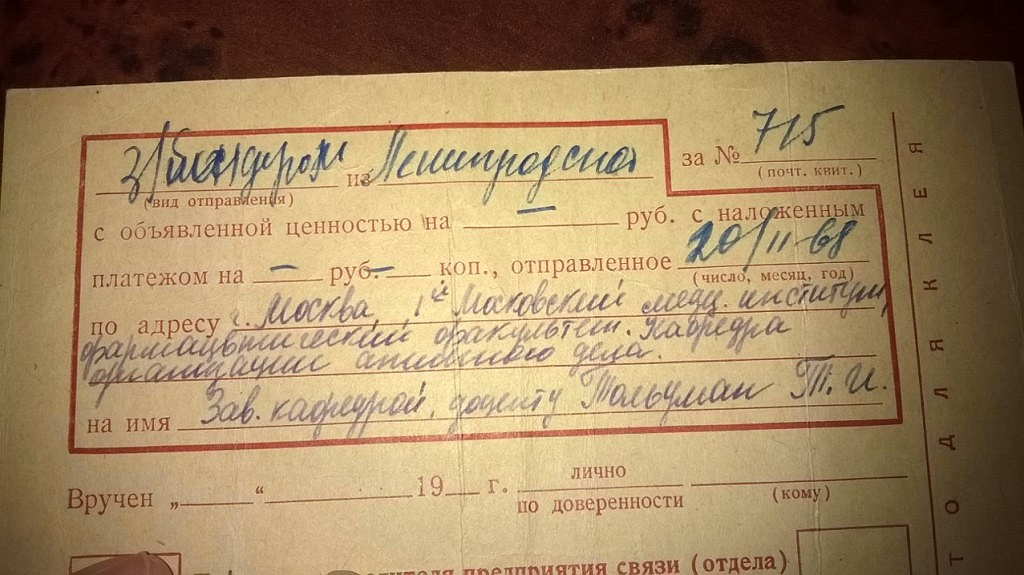 з/бандероль из Ленинградской за № 715
(вид отправления) (почт. квит.)
с объявленной ценностью на — руб. с наложенным
платежом на — руб. — коп., отправленное 20/II-68
(число, месяц, год)
по адресу г. Москва, 1й Московский мед. институт,
фармацевтический факультет. Кафедра
организации аптечного дела.
на имя Зав. кафедрой, доценту Тольцман Т. И.
Вручен „ “ 19 г. лично
по доверенности (кому)
предприятия связи (отдела)
КЛЕЯ
ДЛЯ